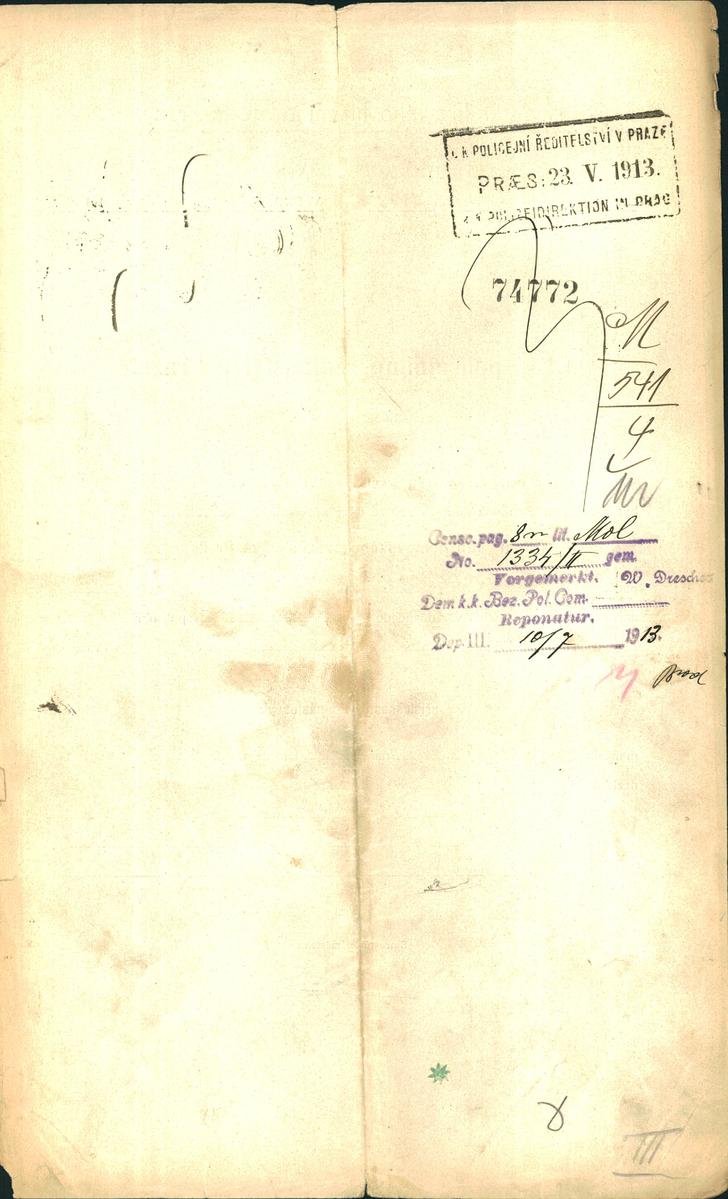 K. K. POLICEJNÍ ŘEDITELSTVÍ V PRAZE
PRÆS: 23. V. 1913.
K. K. POLIZEIDIREKTION IN PRAG
74772
M
541
4
Consc. pag. 8n lit. Mol
No. 1334/II gem.
Vorgemerkt. W. Dresche
Dem k.k. Bez. Pol. Com.
Reponatur.
Dep. III. 10/7 1913.
III